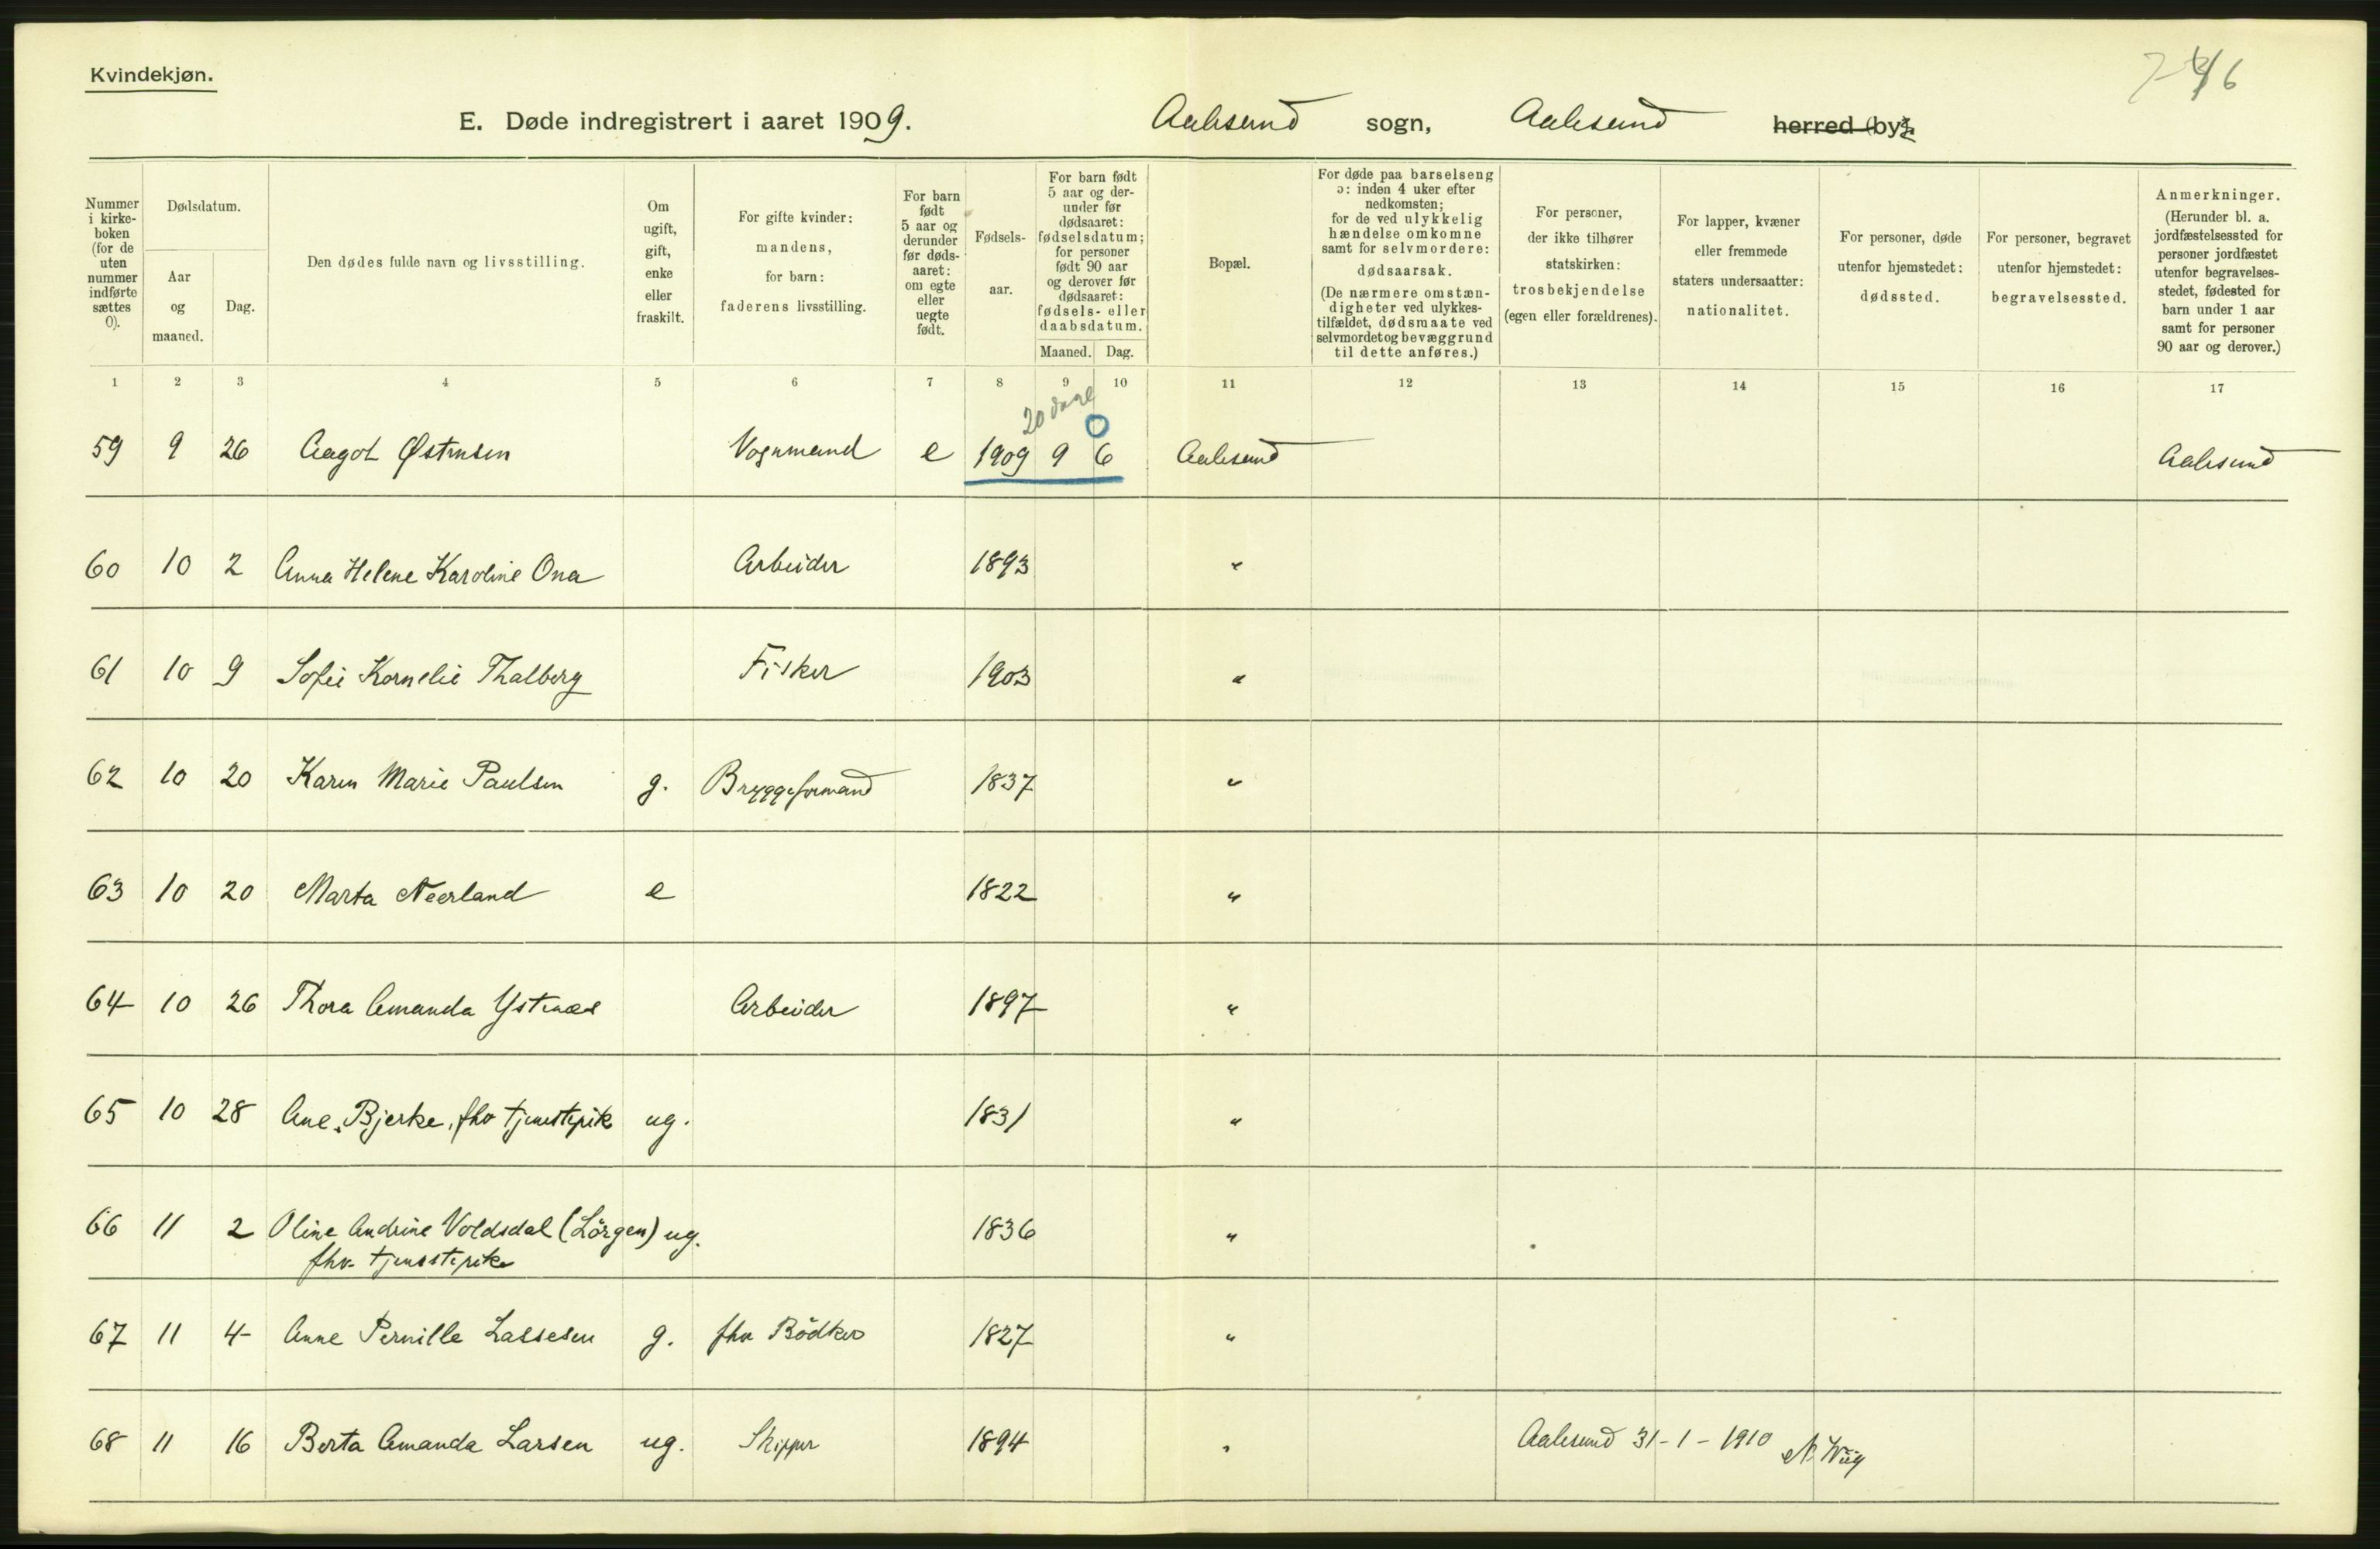 Kvindekjøn.
746
E. Døde indregistrert i aaret 1909. Aalesund sogn, Aalesund herred (by).
Nummer i kirke- boken (for de uten nummer indførte sættes 0).
Dødsdatum.
Aar og maaned.
Dag.
Den dødes fulde navn og livsstilling.
Om ugift, gift, enke eller fraskilt.
For gifte kvinder: mandens, for barn: faderens livsstilling.
For barn født 5 aar og derunder før døds- aaret: om egte eller uegte født.
Fødsels- aar.
For barn født 5 aar og der- under før dødsaaret: fødselsdatum; for personer født 90 aar og derover før dødsaaret: fødsels- eller daabsdatum.
Maaned. Dag.
Bopæl.
For døde paa barselseng ɔ: inden 4 uker efter nedkomsten; for de ved ulykkelig hændelse omkomne samt for selvmordere: dødsaarsak. (De nærmere omstæn- digheter ved ulykkes- tilfældet, dødsmaate ved selvmordet og bevæggrund til dette anføres.)
For personer, der ikke tilhører statskirken: trosbekjendelse (egen eller forældrenes).
For lapper, kvæner eller fremmede staters undersaatter: nationalitet.
For personer, døde utenfor hjemstedet: dødssted.
For personer, begravet utenfor hjemstedet: begravelsessted.
Anmerkninger. (Herunder bl. a. jordfæstelsessted for personer jordfæstet utenfor begravelses- stedet, fødested for barn under 1 aar samt for personer 90 aar og derover.)
1 2 3 4 5 6 7 8 9 10 11 12 13 14 15 16 17
20 dage
0
59 9 26 Aagot Østensen Vognmand e 1909 9 6 Aalesund Aalesund
60 10 2 Anna Helene Karoline Ona Arbeider 1893 "
61 10 9 Sofie Kornelie Thalberg Fisker 1903 "
62 10 20 Karen Marie Paulsen g. Bryggeformand 1837 "
63 10 20 Marta Neerland e 1822 "
64 10 26 Thora Amanda Ystenæs Arbeider 1897 "
65 10 28 Ane Bjerke, fhv tjenestepike ug. 1831 "
66 11 2 Oline Andrine Voldsdal (Lörgen) ug. 1836 "
fhv. tjenestepike
67 11 4 Anne Pernille Lassesen g. fhv Bödker 1827 "
68 11 16 Berta Amanda Larsen ug. Skipper 1894 " Aalesund 31-1-1910 N. Wiig